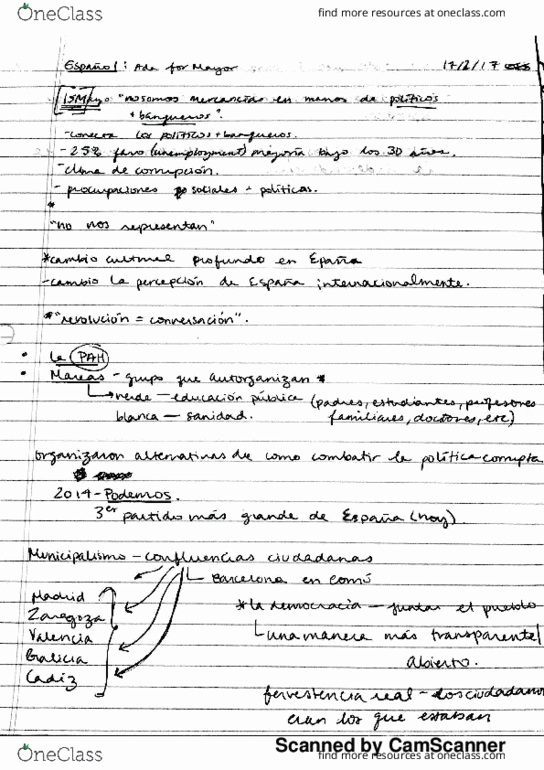 OneClass
find more resources at oneclass.com
Español: Ada for Mayor 17/2/17
15Mayo "no somos mercancías en manos de políticos
+ banqueros".
- los políticos + banqueros.
- 25% paro (unemployment) mayoría bajo los 30 años.
- clima de corrupción.
- preocupaciones sociales + políticas.
*
"no nos representan"
*cambio cultural profundo en España
- cambio la percepción de España internacionalmente.
*"revolución = conversación".
• La PAH
• Mareas - grupo que autorganizan *
verde - educación pública (padres, estudiantes, profesores
blanca - sanidad. familiares, doctores, etc)
organizaron alternativas de como combatir la política corrupta
2014 - Podemos.
3er partido más grande de España (hoy).
Municipalismo - confluencias ciudadanas
Barcelona en comú
Madrid
Zaragoza
Valencia
Galicia
Cadiz
*la democracia - juntar el pueblo
una manera más transparente/
abierto.
real - los ciudadanos
eran los que estaban
Scanned by CamScanner
OneClass
find more resources at oneclass.com